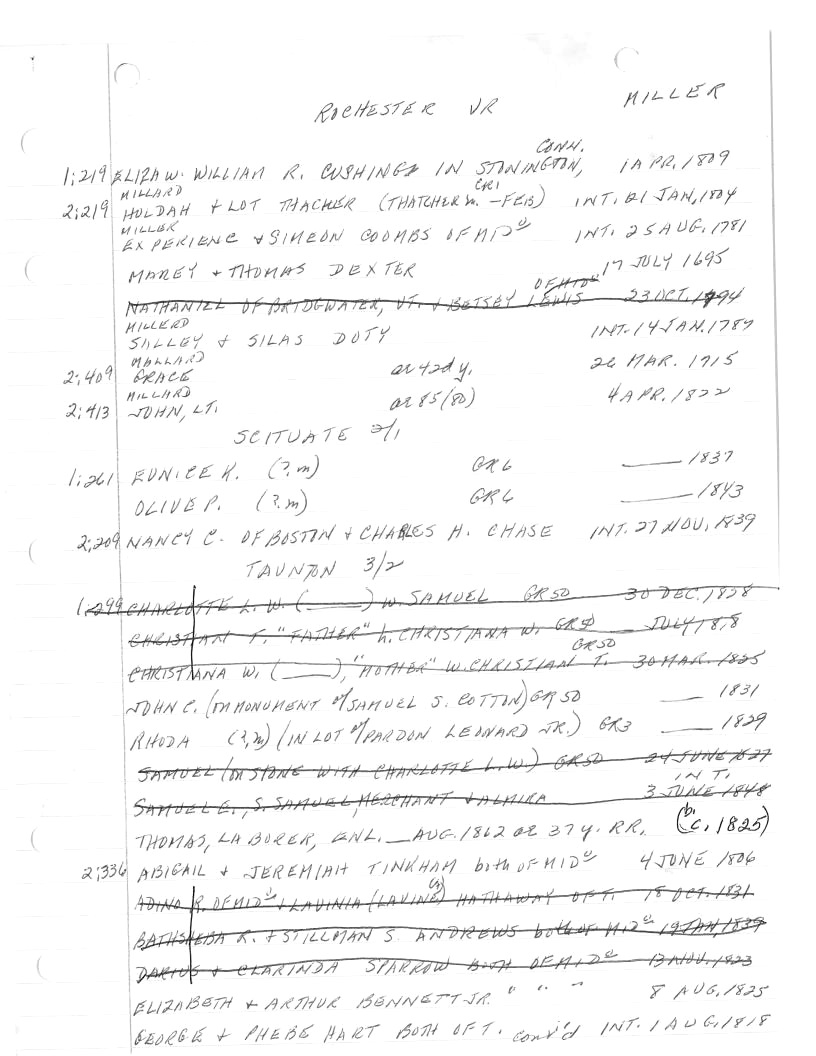 ROCHESTER VR MILLER
CONN.
1;219 ELIZA W. WILLIAM R. CUSHING IN STONINGTON, 1 APR. 1809
MILLARD CR1
2;219 HOLDAH + LOT THACHER (THATCHER m. -FEB) INT. 21 JAN, 1804
MILLER
EXPERIENC + SIMEON COOMBS OF MIDᵒ INT. 25 AUG. 1781
MAREY + THOMAS DEXTER 17 JULY 1695
OF MIDᵒ
NATHANIEL OF BRIDGWATER, VT. + BETSEY LEWIS 23 OCT. 1794
MILLERD
SALLEY + SILAS DOTY INT. 14 JAN. 1787
MALLARD
2;409 GRACE ae 42d y. 26 MAR. 1715
MILLARD
2;413 JOHN, LT. ae 85 (80) 4 APR. 1822
SCITUATE 2/1
1;261 EUNICE K. (?.m) GR6 —— 1837
OLIVE P. (?.m) GR6 —— 1843
2;209 NANCY C. OF BOSTON + CHARLES H. CHASE INT. 27 NOV, 1839
TAUNTON 3/2
1;299 CHARLOTTE L. W. (——) w. SAMUEL GR50 30 DEC. 1828
CHRISTIAN T. "FATHER" h. CHRISTIANA W. GR50 JULY 1818
GR50
CHRISTIANA W. (——), "MOTHER" W. CHRISTIAN T. 30 MAR. 1825
JOHN C. (ON MONUMENT of SAMUEL S. COTTON) GR50 —— 1831
RHODA (?,m) (IN LOT of PARDON LEONARD JR.) GR3 —— 1829
SAMUEL (ON STONE WITH CHARLOTTE L.W.) GR50 24 JUNE 1827
INT.
SAMUEL E., S. SAMUEL, MERCHANT + ALMIRA 3 JUNE 1848
b.
THOMAS, LABORER, ENL. — AUG. 1862 ae 37 y. RR. (c. 1825)
2;336 ABIGAIL + JEREMIAH TINKHAM both OF MIDᵒ 4 JUNE 1806
ADINO R. OF MIDᵒ + LAVINIA (LAVINE) HATHAWAY OF T. 18 OCT. 1831
BATHSHEBA R. + STILLMAN S. ANDREWS both OF MIDᵒ 19 JAN, 1839
DARIUS + CLARINDA SPARROW BOTH OF MIDᵒ 13 NOV. 1823
ELIZABETH + ARTHUR BENNETT JR. " " " 8 AUG. 1825
GEORGE + PHEBE HART BOTH OF T. conv'd INT. 1 AUG. 1818